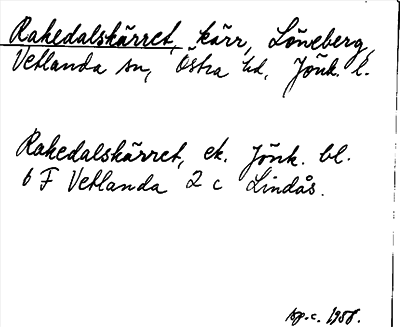 Rakedalskärret, kärr, Löneberg,
Vetlanda sn, Östra hd, Jönk. l.
Rakedalskärret, ek. Jönk. bl.
6 F Vetlanda 2 c Lindås.
1958.